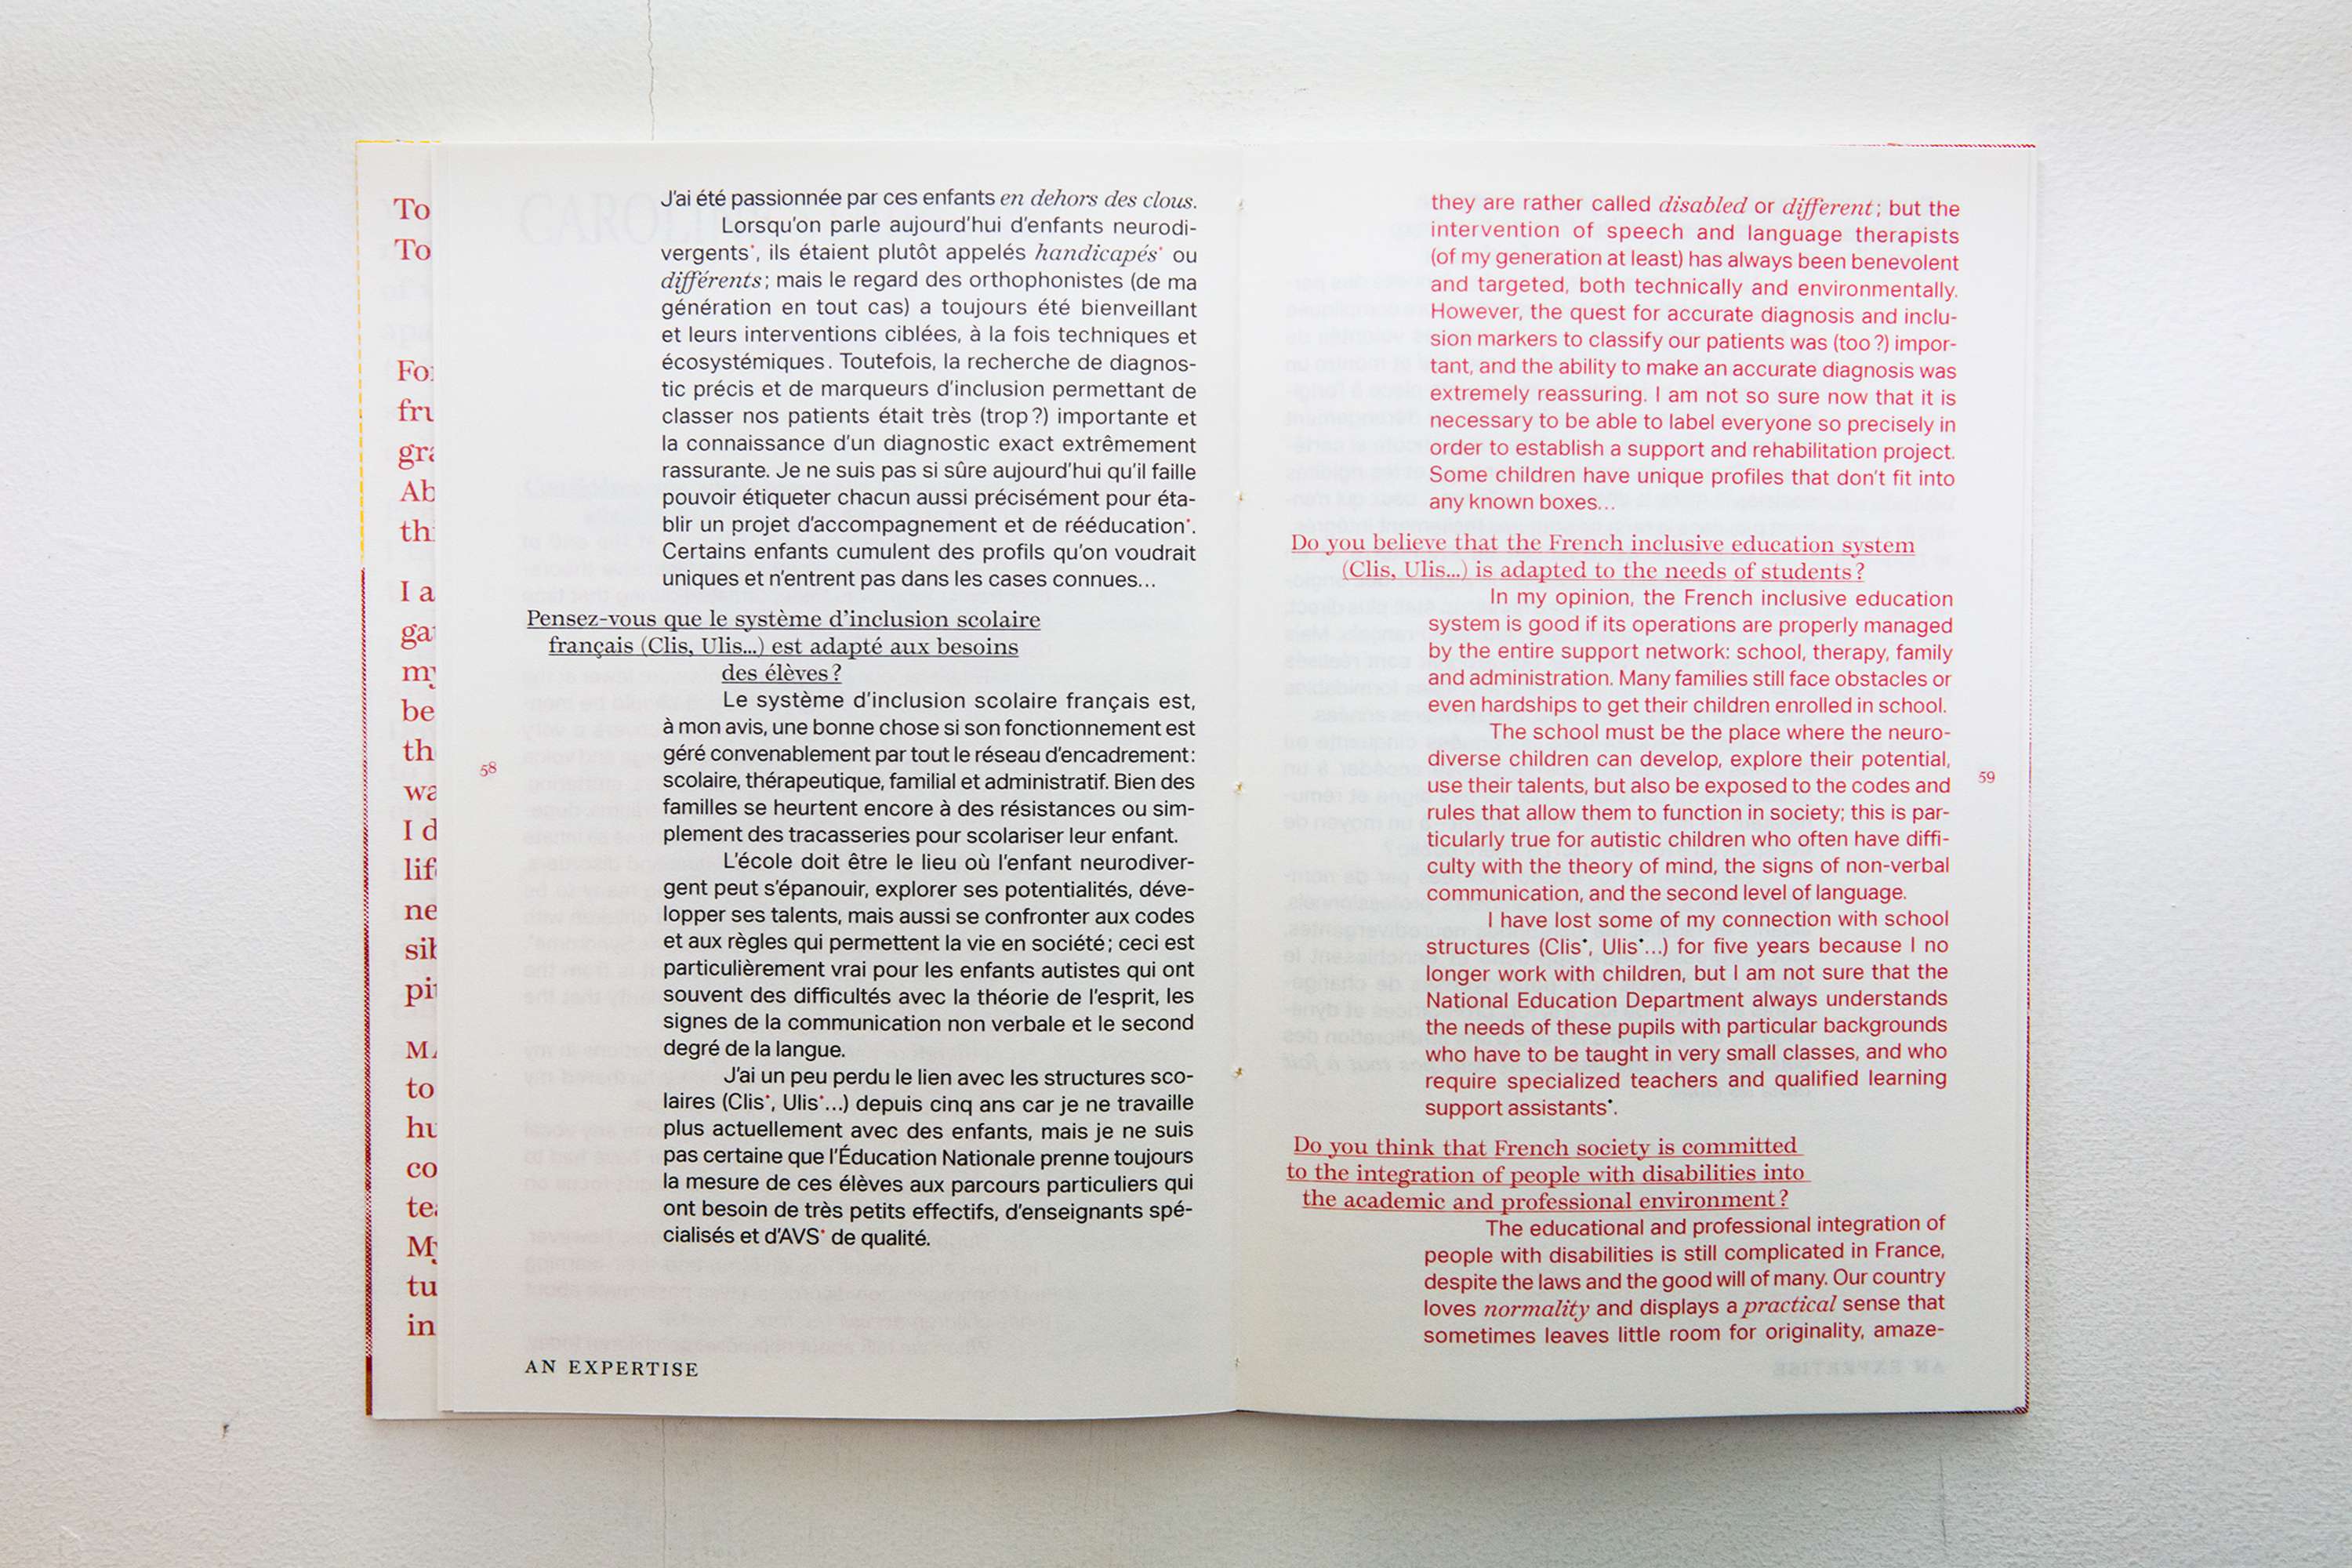 To
To
fru
Ab
I a
be
wa
I d
ne
to
co
My
tu
in
J'ai été passionnée par ces enfants en dehors des clous.
Lorsqu'on parle aujourd'hui d'enfants neurodi-
vergents*, ils étaient plutôt appelés handicapés* ou
différents ; mais le regard des orthophonistes (de ma
génération en tout cas) a toujours été bienveillant
et leurs interventions ciblées, à la fois techniques et
écosystémiques. Toutefois, la recherche de diagnos-
tic précis et de marqueurs d'inclusion permettant de
classer nos patients était très (trop ?) importante et
la connaissance d'un diagnostic exact extrêmement
rassurante. Je ne suis pas si sûre aujourd'hui qu'il faille
pouvoir étiqueter chacun aussi précisément pour éta-
blir un projet d'accompagnement et de rééducation*.
Certains enfants cumulent des profils qu'on voudrait
uniques et n'entrent pas dans les cases connues…
Pensez-vous que le système d'inclusion scolaire
français (Clis, Ulis…) est adapté aux besoins
des élèves ?
Le système d'inclusion scolaire français est,
à mon avis, une bonne chose si son fonctionnement est
géré convenablement par tout le réseau d'encadrement :
scolaire, thérapeutique, familial et administratif. Bien des
familles se heurtent encore à des résistances ou sim-
plement des tracasseries pour scolariser leur enfant.
L'école doit être le lieu où l'enfant neurodiver-
gent peut s'épanouir, explorer ses potentialités, déve-
lopper ses talents, mais aussi se confronter aux codes
et aux règles qui permettent la vie en société ; ceci est
particulièrement vrai pour les enfants autistes qui ont
souvent des difficultés avec la théorie de l'esprit, les
signes de la communication non verbale et le second
degré de la langue.
J'ai un peu perdu le lien avec les structures sco-
laires (Clis*, Ulis*…) depuis cinq ans car je ne travaille
plus actuellement avec des enfants, mais je ne suis
pas certaine que l'Éducation Nationale prenne toujours
la mesure de ces élèves aux parcours particuliers qui
ont besoin de très petits effectifs, d'enseignants spé-
cialisés et d'AVS* de qualité.
58
AN EXPERTISE
they are rather called disabled or different ; but the
intervention of speech and language therapists
(of my generation at least) has always been benevolent
and targeted, both technically and environmentally.
However, the quest for accurate diagnosis and inclu-
sion markers to classify our patients was (too ?) impor-
tant, and the ability to make an accurate diagnosis was
extremely reassuring. I am not so sure now that it is
necessary to be able to label everyone so precisely in
order to establish a support and rehabilitation project.
Some children have unique profiles that don't fit into
any known boxes…
Do you believe that the French inclusive education system
(Clis, Ulis…) is adapted to the needs of students ?
In my opinion, the French inclusive education
system is good if its operations are properly managed
by the entire support network: school, therapy, family
and administration. Many families still face obstacles or
even hardships to get their children enrolled in school.
The school must be the place where the neuro-
diverse children can develop, explore their potential,
use their talents, but also be exposed to the codes and
rules that allow them to function in society; this is par-
ticularly true for autistic children who often have diffi-
culty with the theory of mind, the signs of non-verbal
communication, and the second level of language.
I have lost some of my connection with school
structures (Clis*, Ulis*…) for five years because I no
longer work with children, but I am not sure that the
National Education Department always understands
the needs of these pupils with particular backgrounds
who have to be taught in very small classes, and who
require specialized teachers and qualified learning
support assistants*.
Do you think that French society is committed
to the integration of people with disabilities into
the academic and professional environment ?
The educational and professional integration of
people with disabilities is still complicated in France,
despite the laws and the good will of many. Our country
loves normality and displays a practical sense that
sometimes leaves little room for originality, amaze-
59